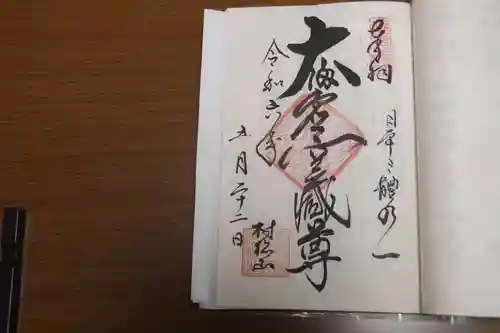 奉拝
日本三體ノ一
大虚空蔵尊
令和六年
五月二十二日
村松山